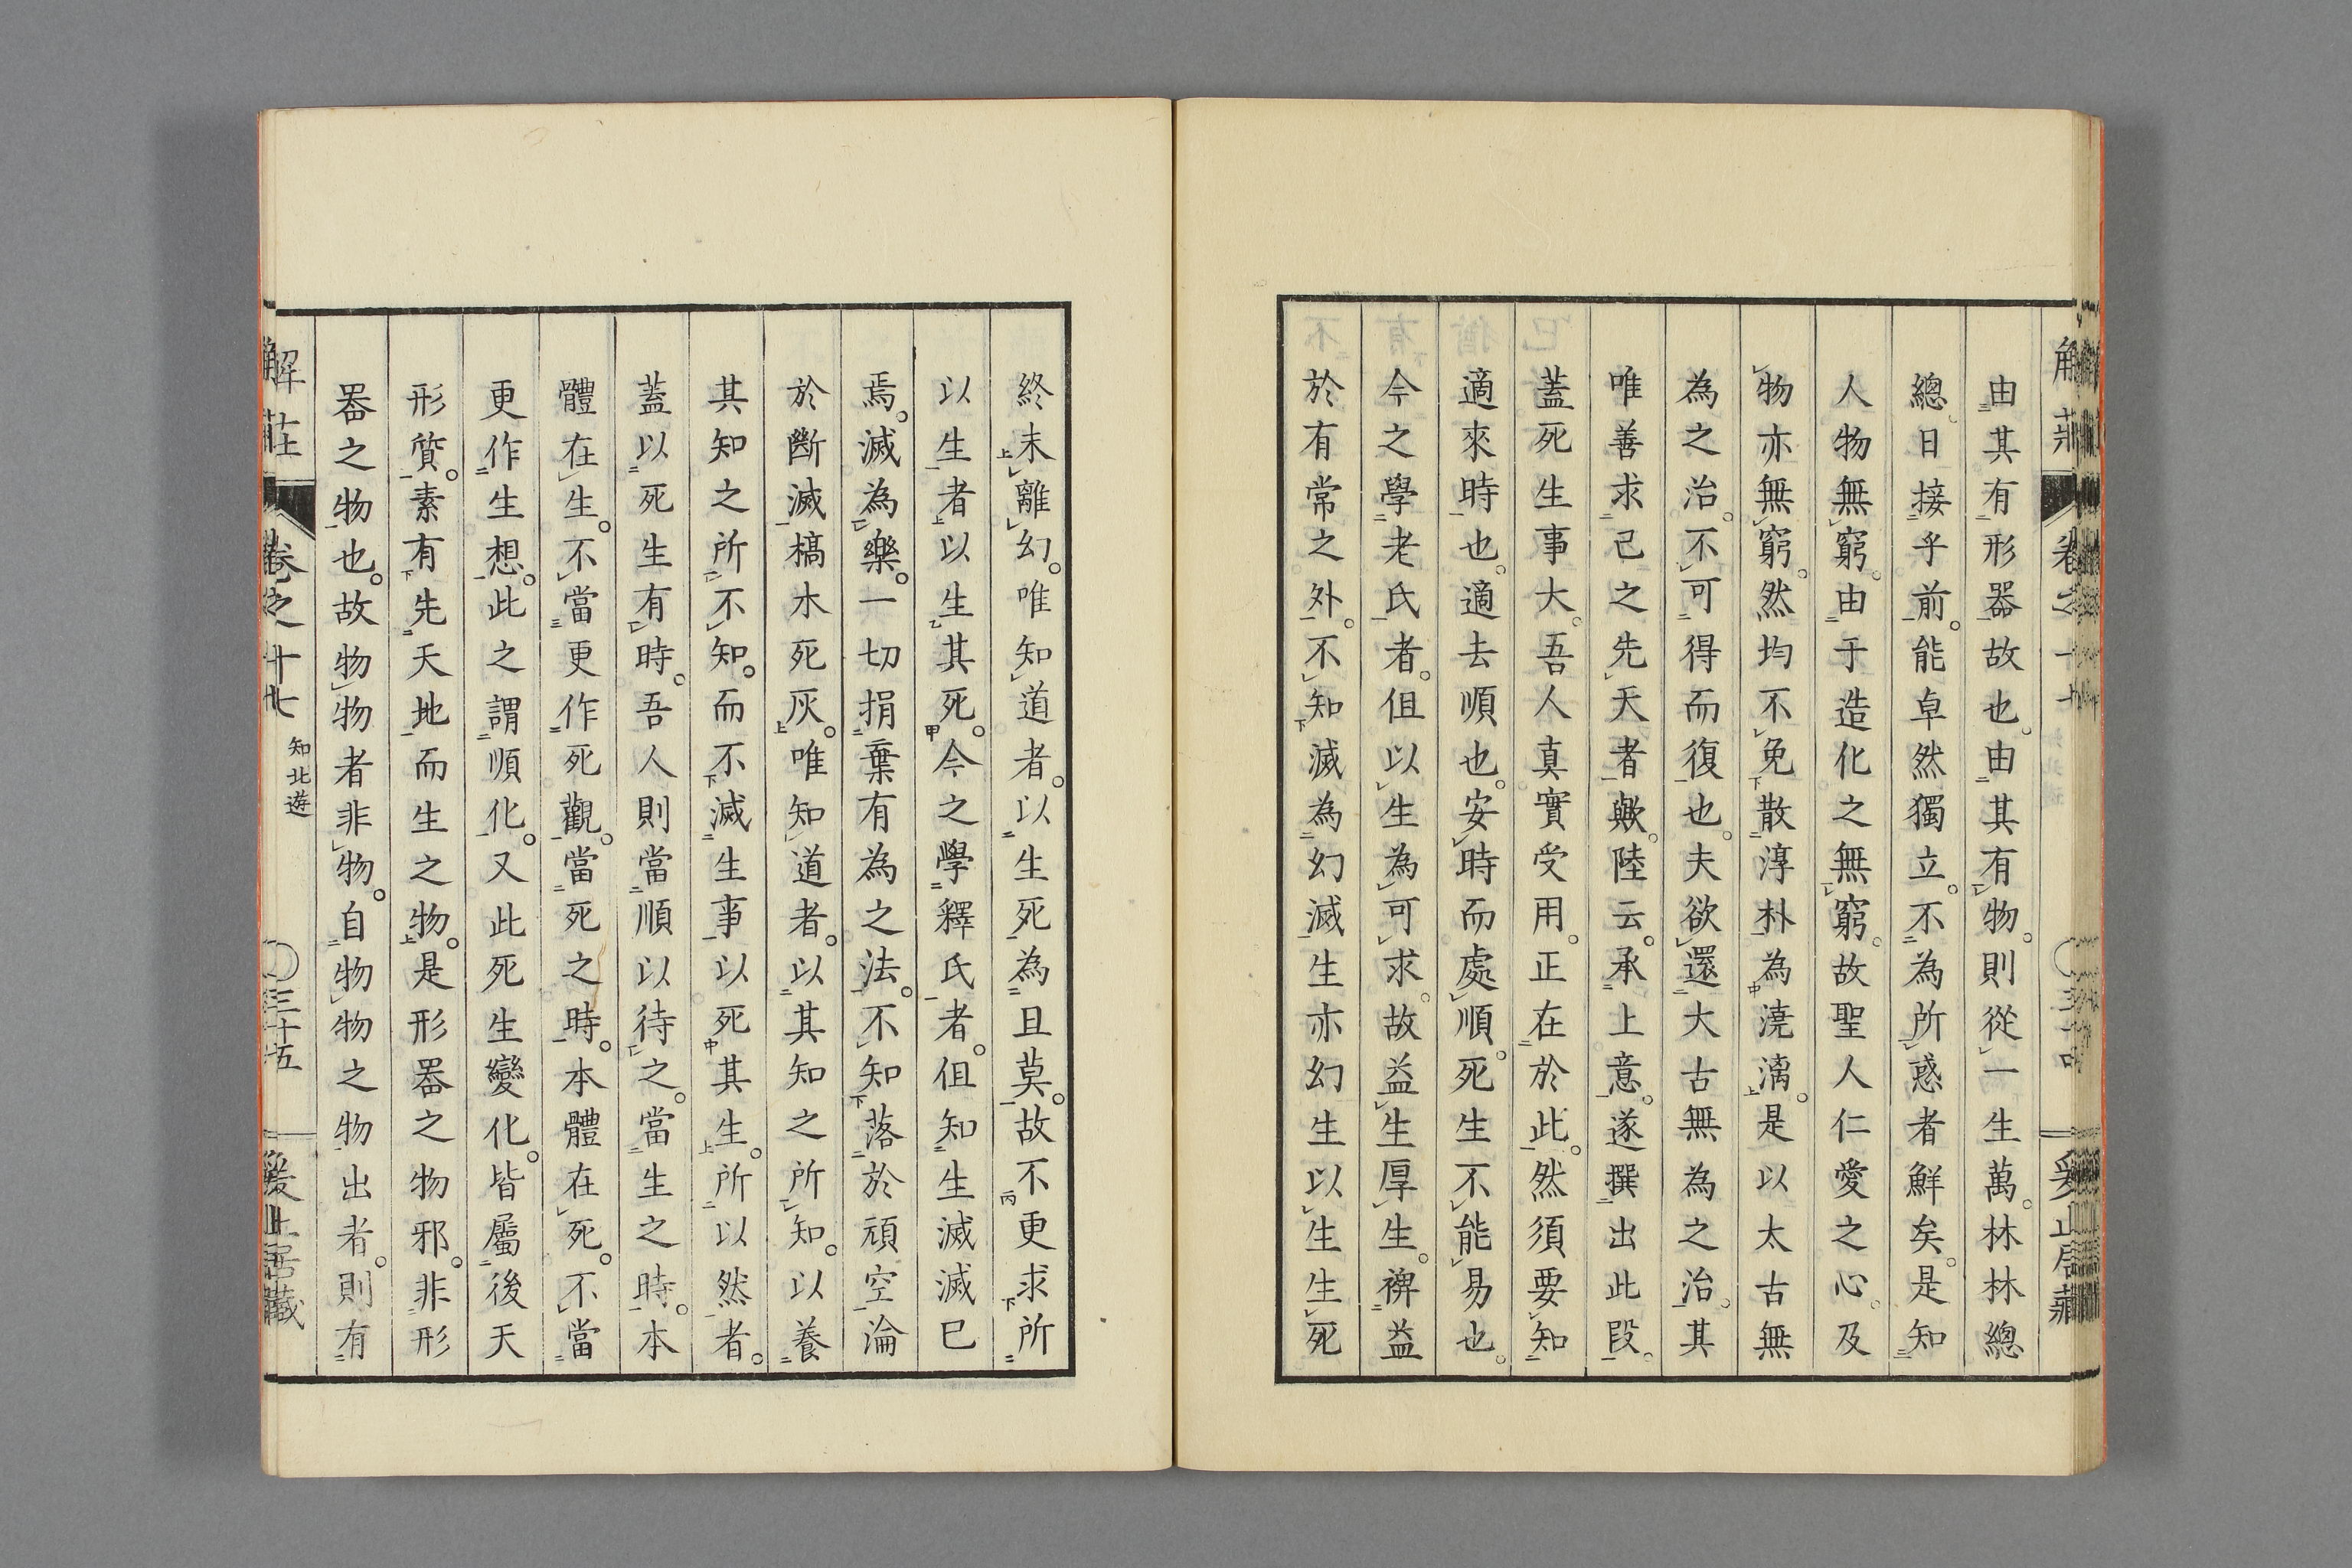 由其有形器故也。由其有物。則從一生萬。林林總
總。日接乎前。能卓然獨立。不為所惑者鮮矣。是知
人物無窮。由于造化之無窮。故聖人仁愛之心。及
物亦無窮。然均不免散淳朴為澆漓。是以太古無
為之治。不可得而復也。夫欲還大古無為之治。其
唯善求己之先天者歟。陸云。承上意。遂撰出此段。
蓋死生事大。吾人真實受用。正在於此。然須要知
適來時也。適去順也。安時而處順。死生不能易也。
今之學老氏者。但以生為可求。故益生厚生。裨益
於有常之外。不知滅為幻滅。生亦幻生。以生生死
終未離幻。唯知道者。以生死為旦莫。故不更求所
以生者以生其死。今之學釋氏者。但知生滅滅已
焉。滅為樂。一切捐棄有為之法。不知落於頑空淪
於斷滅。槁木死灰。唯知道者。以其知之所知。以養
其知之所不知。而不滅生事以死其生。所以然者。
蓋以死生有時。吾人則當順以待之。當生之時。本
體在生。不當更作死觀。當死之時。本體在死。不當
更作生想。此之謂順化。又此死生變化。皆屬後天
形質。素有先天地而生之物。是形器之物邪。非形
器之物也。故物物者非物。自物物之物出者。則有
解莊
卷之十七
知北遊
三十五
爰止居藏